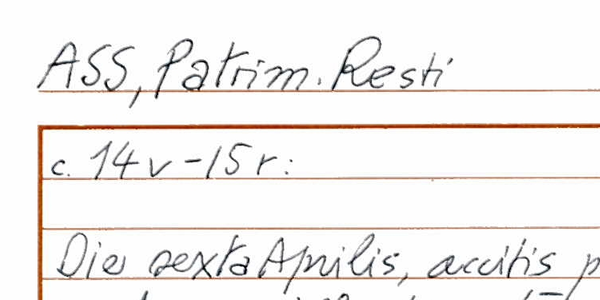 ASS, Patrim. Resti
c. 14v-15r:
Die sexta Aprilis, accitis p